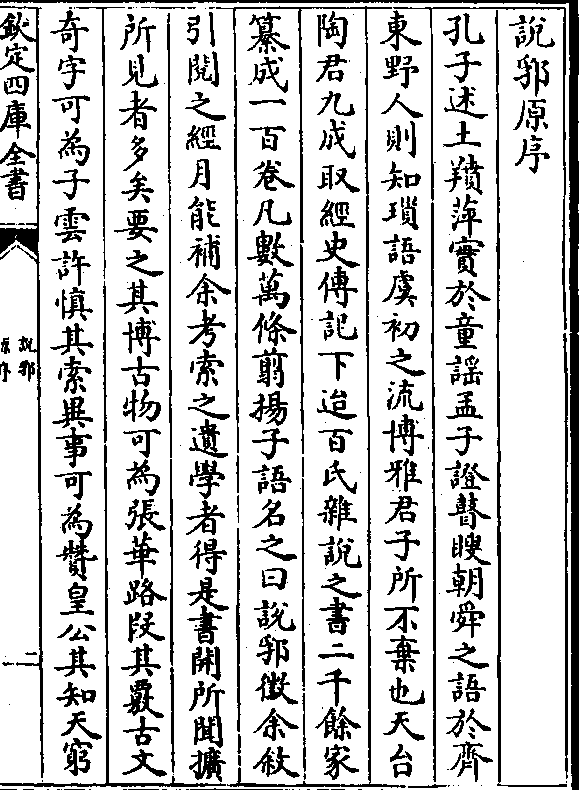 說郛原序
孔子述土羵萍實於童謡孟子證瞽瞍朝舜之語於齊
東野人則知瑣語虞初之流博雅君子所不棄也天台
陶君九成取經史傳記下迨百氏雜說之書二千餘家
纂成一百卷凡數萬條剪揚子語名之曰說郛徵余敘
引閱之經月能補余考索之遺學者得是書開所聞擴
所見者多矣要之其博古物可為張華路段其覈古文
奇字可為子雲許慎其索異事可為贊皇公其知天窮
欽定四庫全書
說郛
原序
二